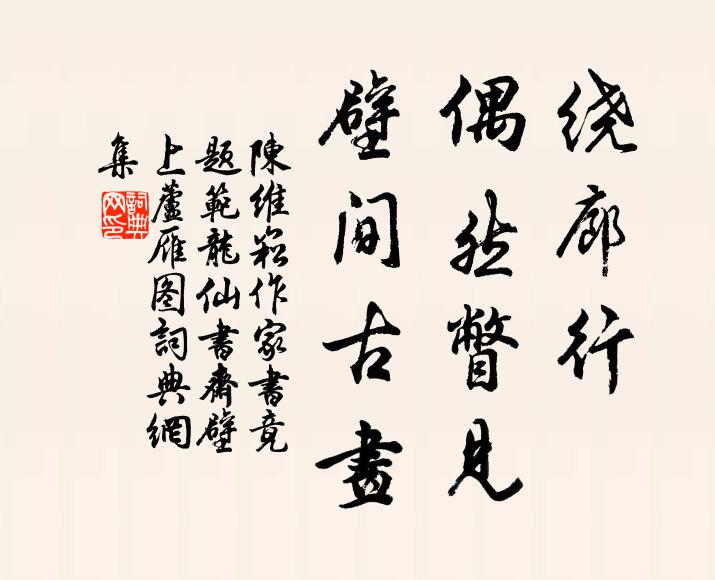 绕廊行
偶然瞥见
壁间古畫
陳維崧作家書竟
题範龍仙書齋壁
上蘆雁图詞典網
集
詞典網印